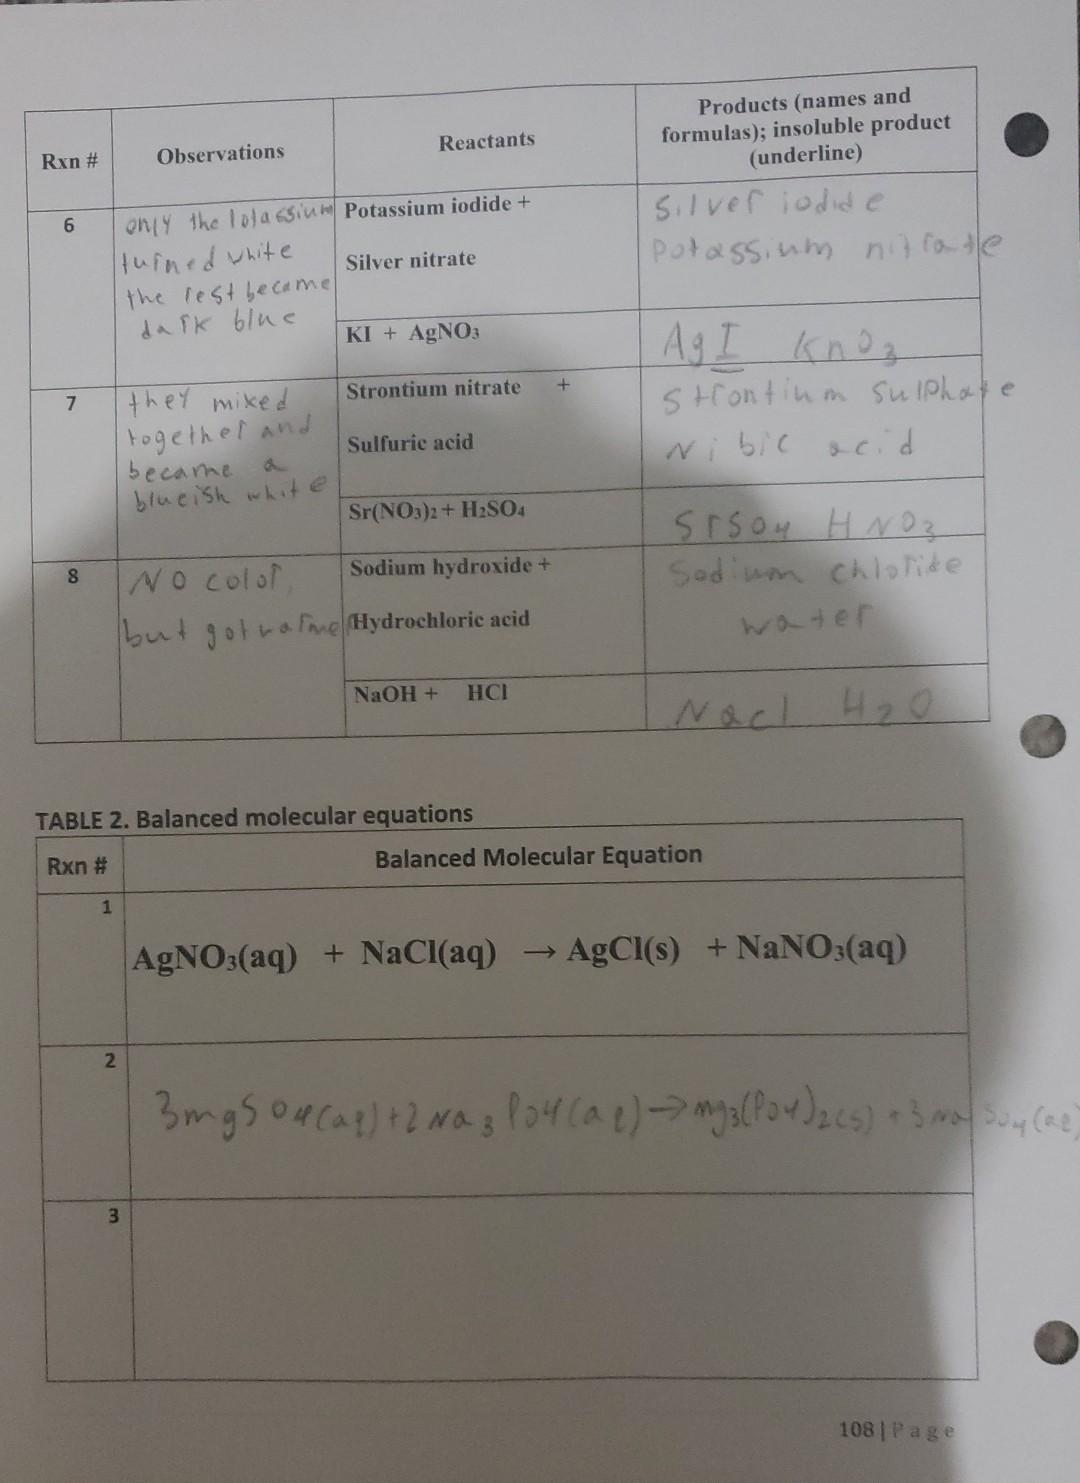 Rxn #
Observations
Reactants
Products (names and
formulas); insoluble product
(underline)
6
only the Potassium
turned white
the rest became
dark blue
Potassium iodide +
Silver nitrate
Silver iodide
Potassium nitrate
KI + AgNO₃
AgI KnO₃
7
they mixed
together and
became a
blueish white
Strontium nitrate +
Sulfuric acid
Strontium sulphate
Nibic acid
Sr(NO₃)₂ + H₂SO₄
SrSO₄ HNO₃
8
NO color,
but got warmer
Sodium hydroxide +
Hydrochloric acid
Sodium chloride
water
NaOH + HCl
Nacl H₂O
TABLE 2. Balanced molecular equations
Rxn #
Balanced Molecular Equation
1
AgNO₃(aq) + NaCl(aq) → AgCl(s) + NaNO₃(aq)
2
3mgSO₄(aq)+2Na₃PO₄(aq)→mg₃(PO₄)₂(s) + 3Na SO₄(aq)
3
108 | Page